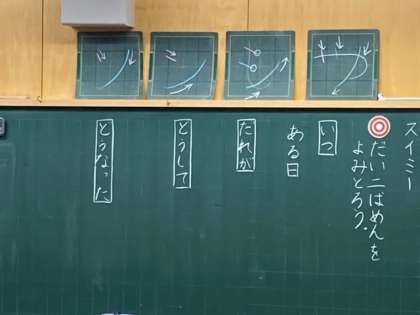 スイミー
だい二ばめんを
よみとろう。
いつ
ある日
だれが
どうして
どうなった